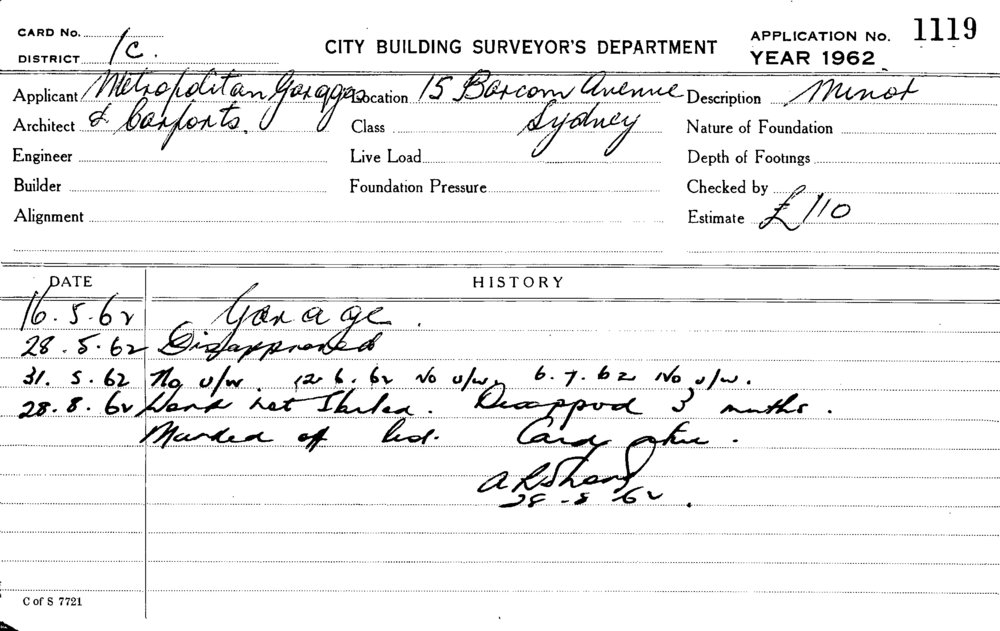 CARD No.
DISTRICT 1c.
CITY BUILDING SURVEYOR'S DEPARTMENT
APPLICATION No. 1119
YEAR 1962
Applicant Metropolitan Garages Location 15 Barcom Avenue Description Minor
Architect & Carports. Class Sydney Nature of Foundation
Engineer Live Load Depth of Footings
Builder Foundation Pressure Checked by
Alignment Estimate £110
DATE HISTORY
16.5.62 Garage.
28.5.62 Disapproved
31.5.62 No u/w. 12.6.62 No u/w. 6.7.62 No u/w.
28.8.62 Work not Started. Disappvd 3 months.
Marked off list. Card
28-8-62.
C of S 7721